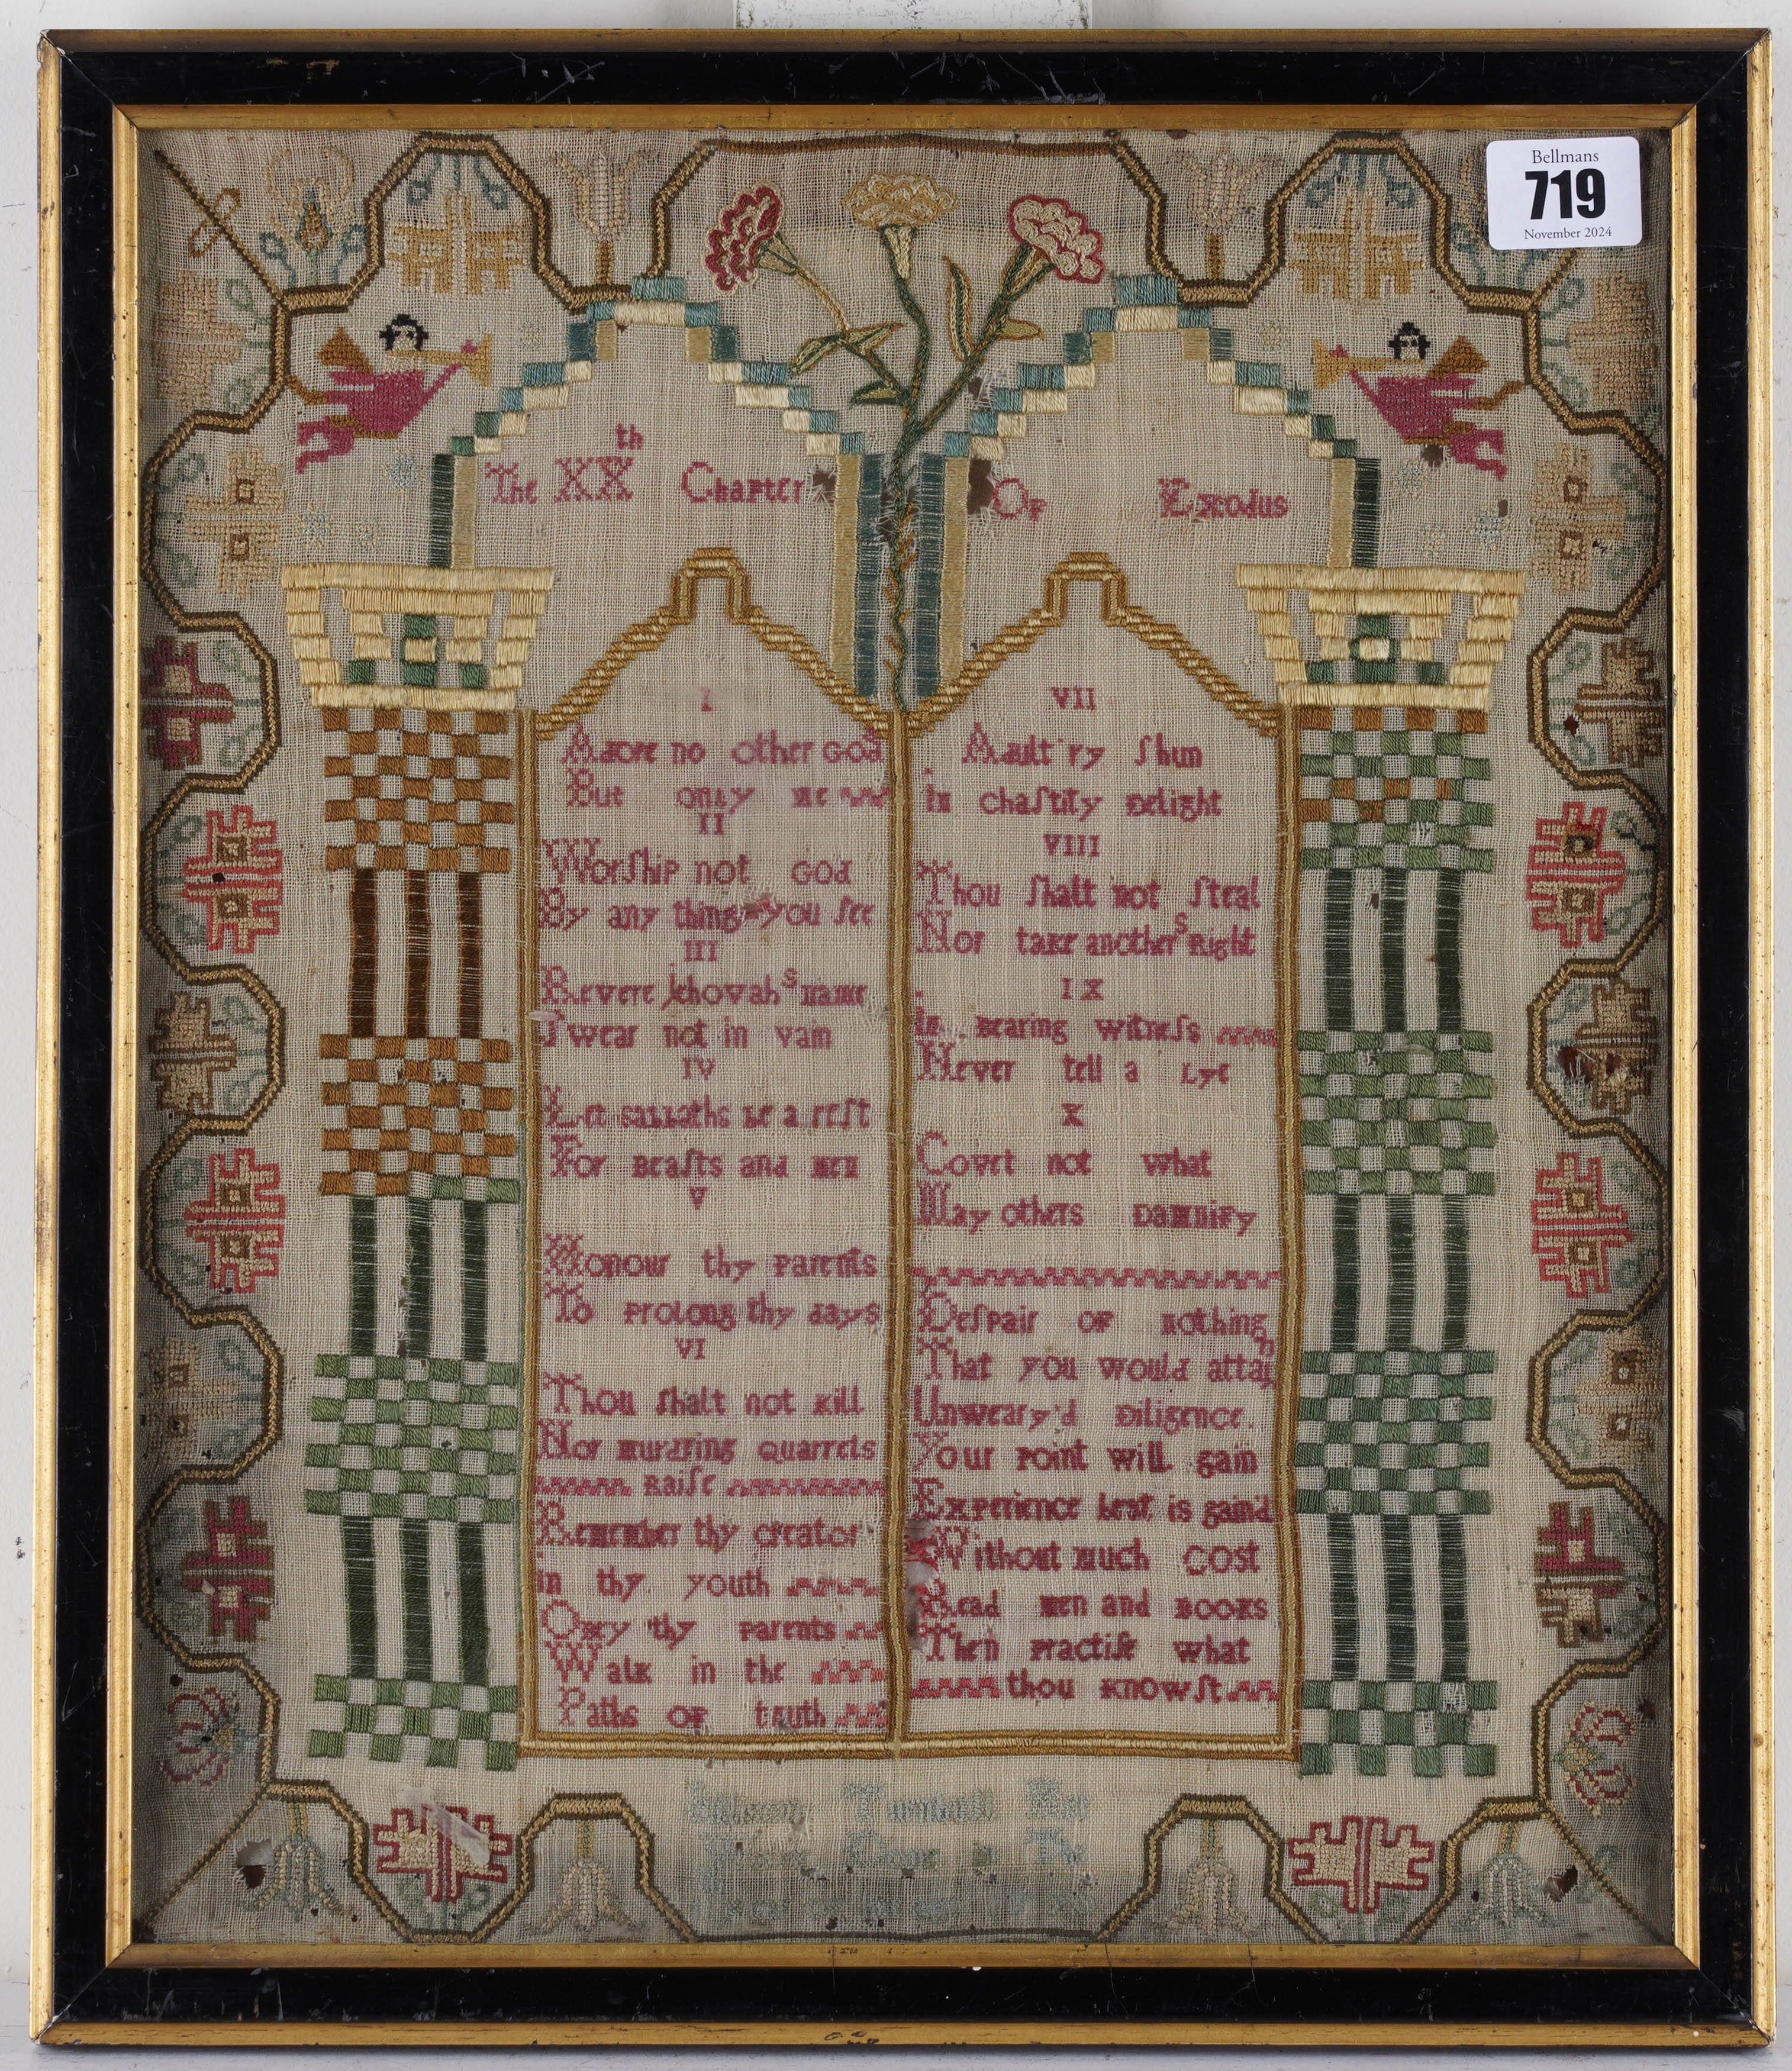 Bellmans
719
November 2024
The XXth Chapter Of Exodus
I
Adore no other God
But only me
II
Worſhip not God
By any thing you ſee
III
Revere Jehovahs name
Swear not in vain
IV
Let sabbaths be a reſt
For beaſts and men
V
Honour thy parents
To prolong thy days
VI
Thou ſhalt not kill
Nor murdring quarrels
raiſe
Remember thy creator
in thy youth
Obey thy parents
Walk in the
Paths of truth
VII
Adult'ry ſhun
in chaſtity delight
VIII
Thou ſhalt not ſteal
Nor take anothers Right
IX
in bearing witneſs
Never tell a Lye
X
Covet not what
May others damnify
Deſpair of nothing
That you would attain
Unweary'd diligence.
Your point will gain
Experience best is gain'd
Without much cost
Read men and books
Then practiſe what
thou knowſt
Turnbull Her
in The